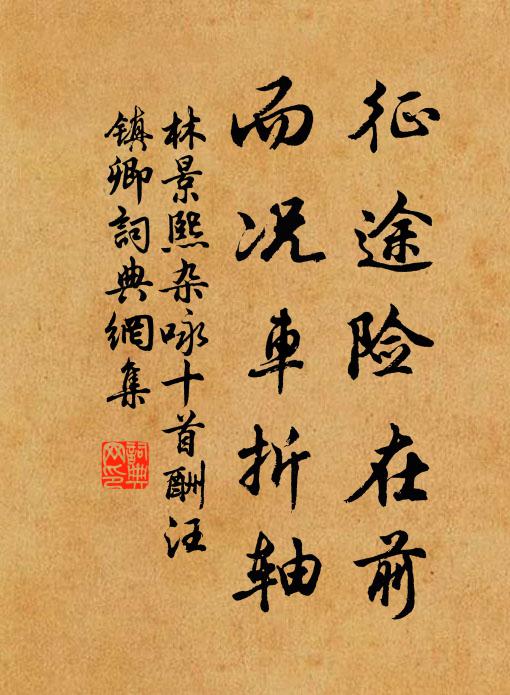 征途险在前
而况車折轴
林景熙杂咏十首酬汪
镇卿詞典網集
詞典網印